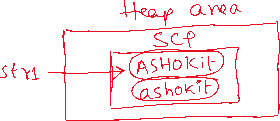 Heap area
SCP
str1
ASHOKit
ashokit